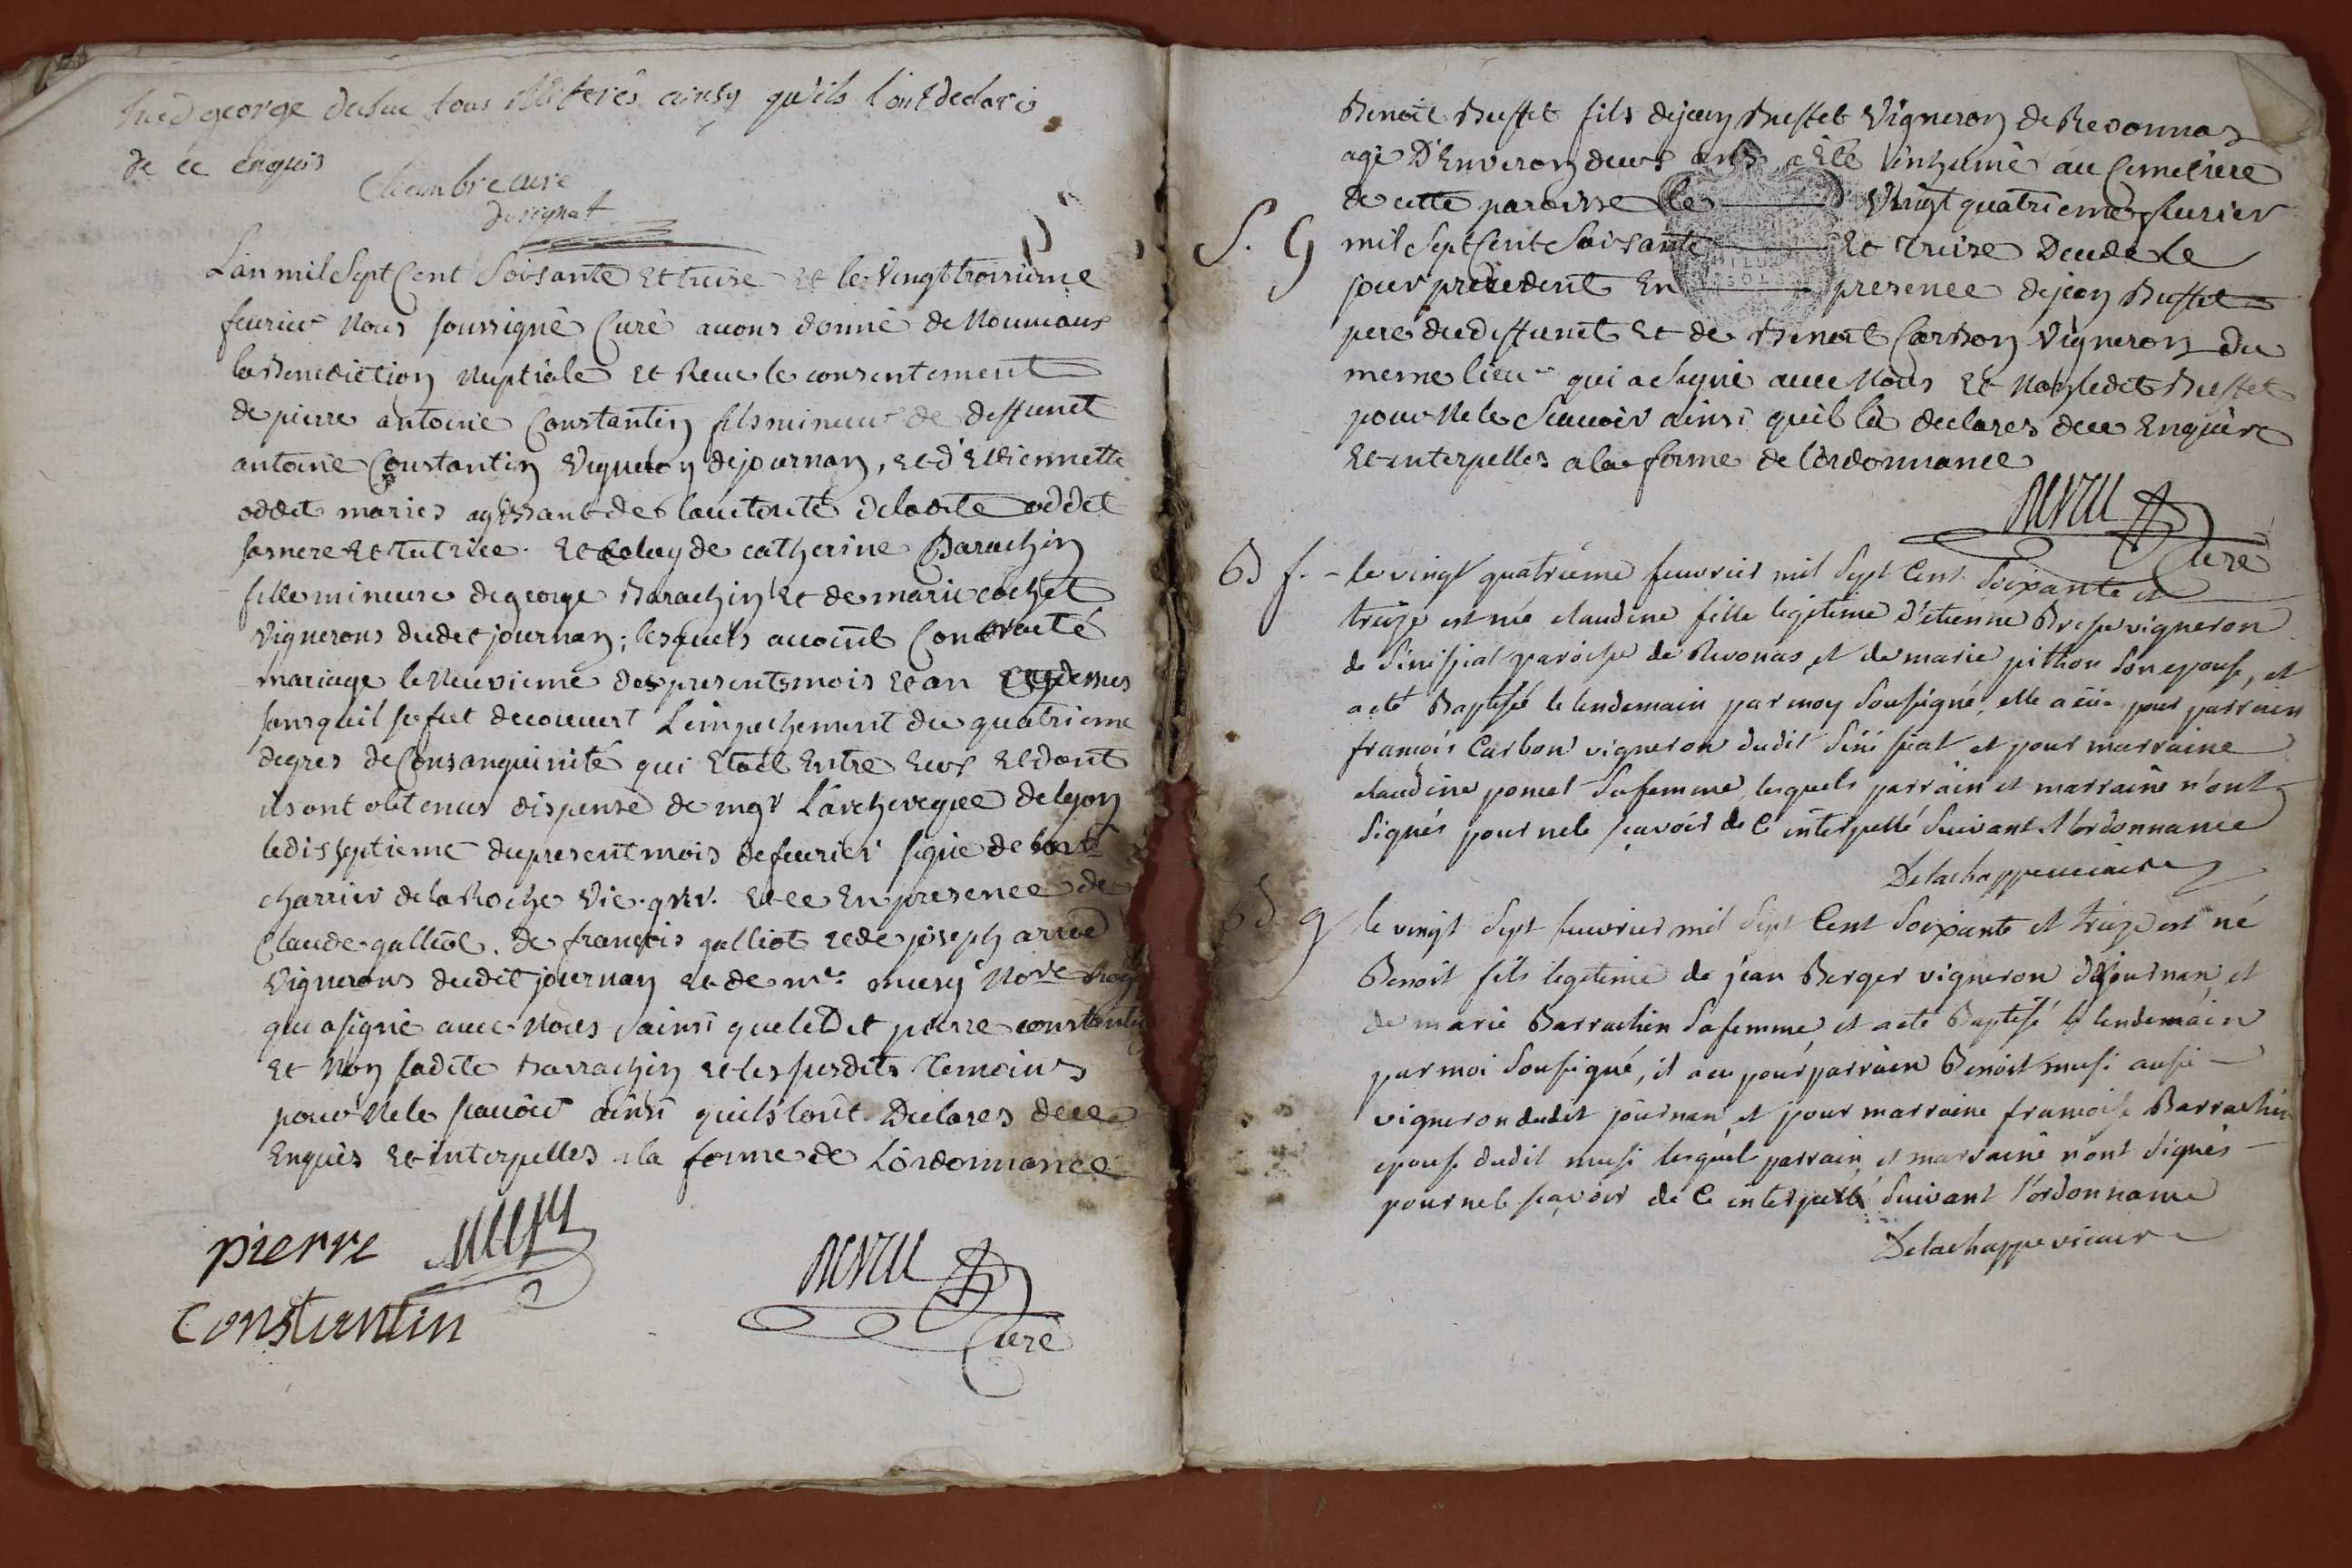 george Desuc tous illiterés ainsy qu'ils l'ont declaré
de ce enquis
Chambre curé
de signat
L'an mil Sept Cent Soixante Et treize Et le Vingt troisieme
feurier Nous soussigné Curé auons donné de Nouueaux
la Benediction Nuptiale Et Receu le consentement
de pierre antoine Constantin fils mineur de deffunct
antoine Constantin Vigneron de journan, et d'Etiennette
oddet mariés agissant de Lauctorité de ladite oddet
sa mere Et tutrice. Et celuy de catherine Barachin
fille mineure de george Barachin Et de marie cochet
Vignerons dudet journan; lesquels auoint Contracté
mariage le Neuvieme des presents mois et an Cy dessus
sans quil se fut decouuert L'empechement du quatrieme
degres de Consanguinité qui Etoit Entre Eux Et dont
ils ont obtenus dispense de mgr L'archeveque de lyon
le dis septieme du present mois de feurier signé de
charrier de la Roche Vic. gnr. Et ce En presence de
Claude galliot. de francois galliot et de joseph
Vignerons dudit journan et de mre. musy Nore Roy
qui a signé auec Nous ainsi que ledit pierre constantin
Et Non ladite Barrachin et les susdits temoins
pour Ne le scauoir ainsi quils lont Declares de ce
Enquis Et interpelles a la forme de L'ordonnance
pierre musy
Constantin
Curé
Benoit Buffet fils de jean Buffet Vigneron de Revonnas
agé D'Environ deux ans a Eté Inhumé au Cimetiere
de cette paroisse le Vingt quatrieme feurier
S. G mil Sept Cent Soixante Et treize Decede le
jour precedent En presence de jean Buffet
pere du deffunct Et de Benoit Carbon Vigneron du
meme lieu qui a signé auec Nous Et Non ledit Buffet
pour Ne le Scauoir ainsi quil la declares de ce Enquire
Et interpelles a la forme de l'ordonnance
Curé
B f. - le vingt quatrieme feuvrier mil Sept Cent Soixante et
treize est née claudine fille legitime d'etienne vigneron
de Sénissiat paroisse de Revonas et de marie pithon son epouse, et
a eté Baptisée le lendemain par moy Sousigné, elle a eüe pour parrain
françois Carbon vigneron dudit Sénissiat et pour marraine
claudine poncet sa femme, lesquels parrain et marraine n'ont
signés pour ne le sçavoir de Ce interpellé Suivant l'ordonnance
Delachappe vicaire
B g le vingt Sept feuvrier mil Sept Cent Soixante et treize est né
Benoit fils legitime de jean Berger vigneron de journan et
de marie Barrachin Sa femme, et a eté Baptisé le lendemain
par moi Sousigné, il a eu pour parrain Benoit musi aussi
vigneron dudit journan et pour marraine francoise Barrachin
epouse dudit musi lesquel parrain et marraine n'ont signés
pour ne le sçavoir de Ce interpellé Suivant l'ordonnance
Delachappe vicaire